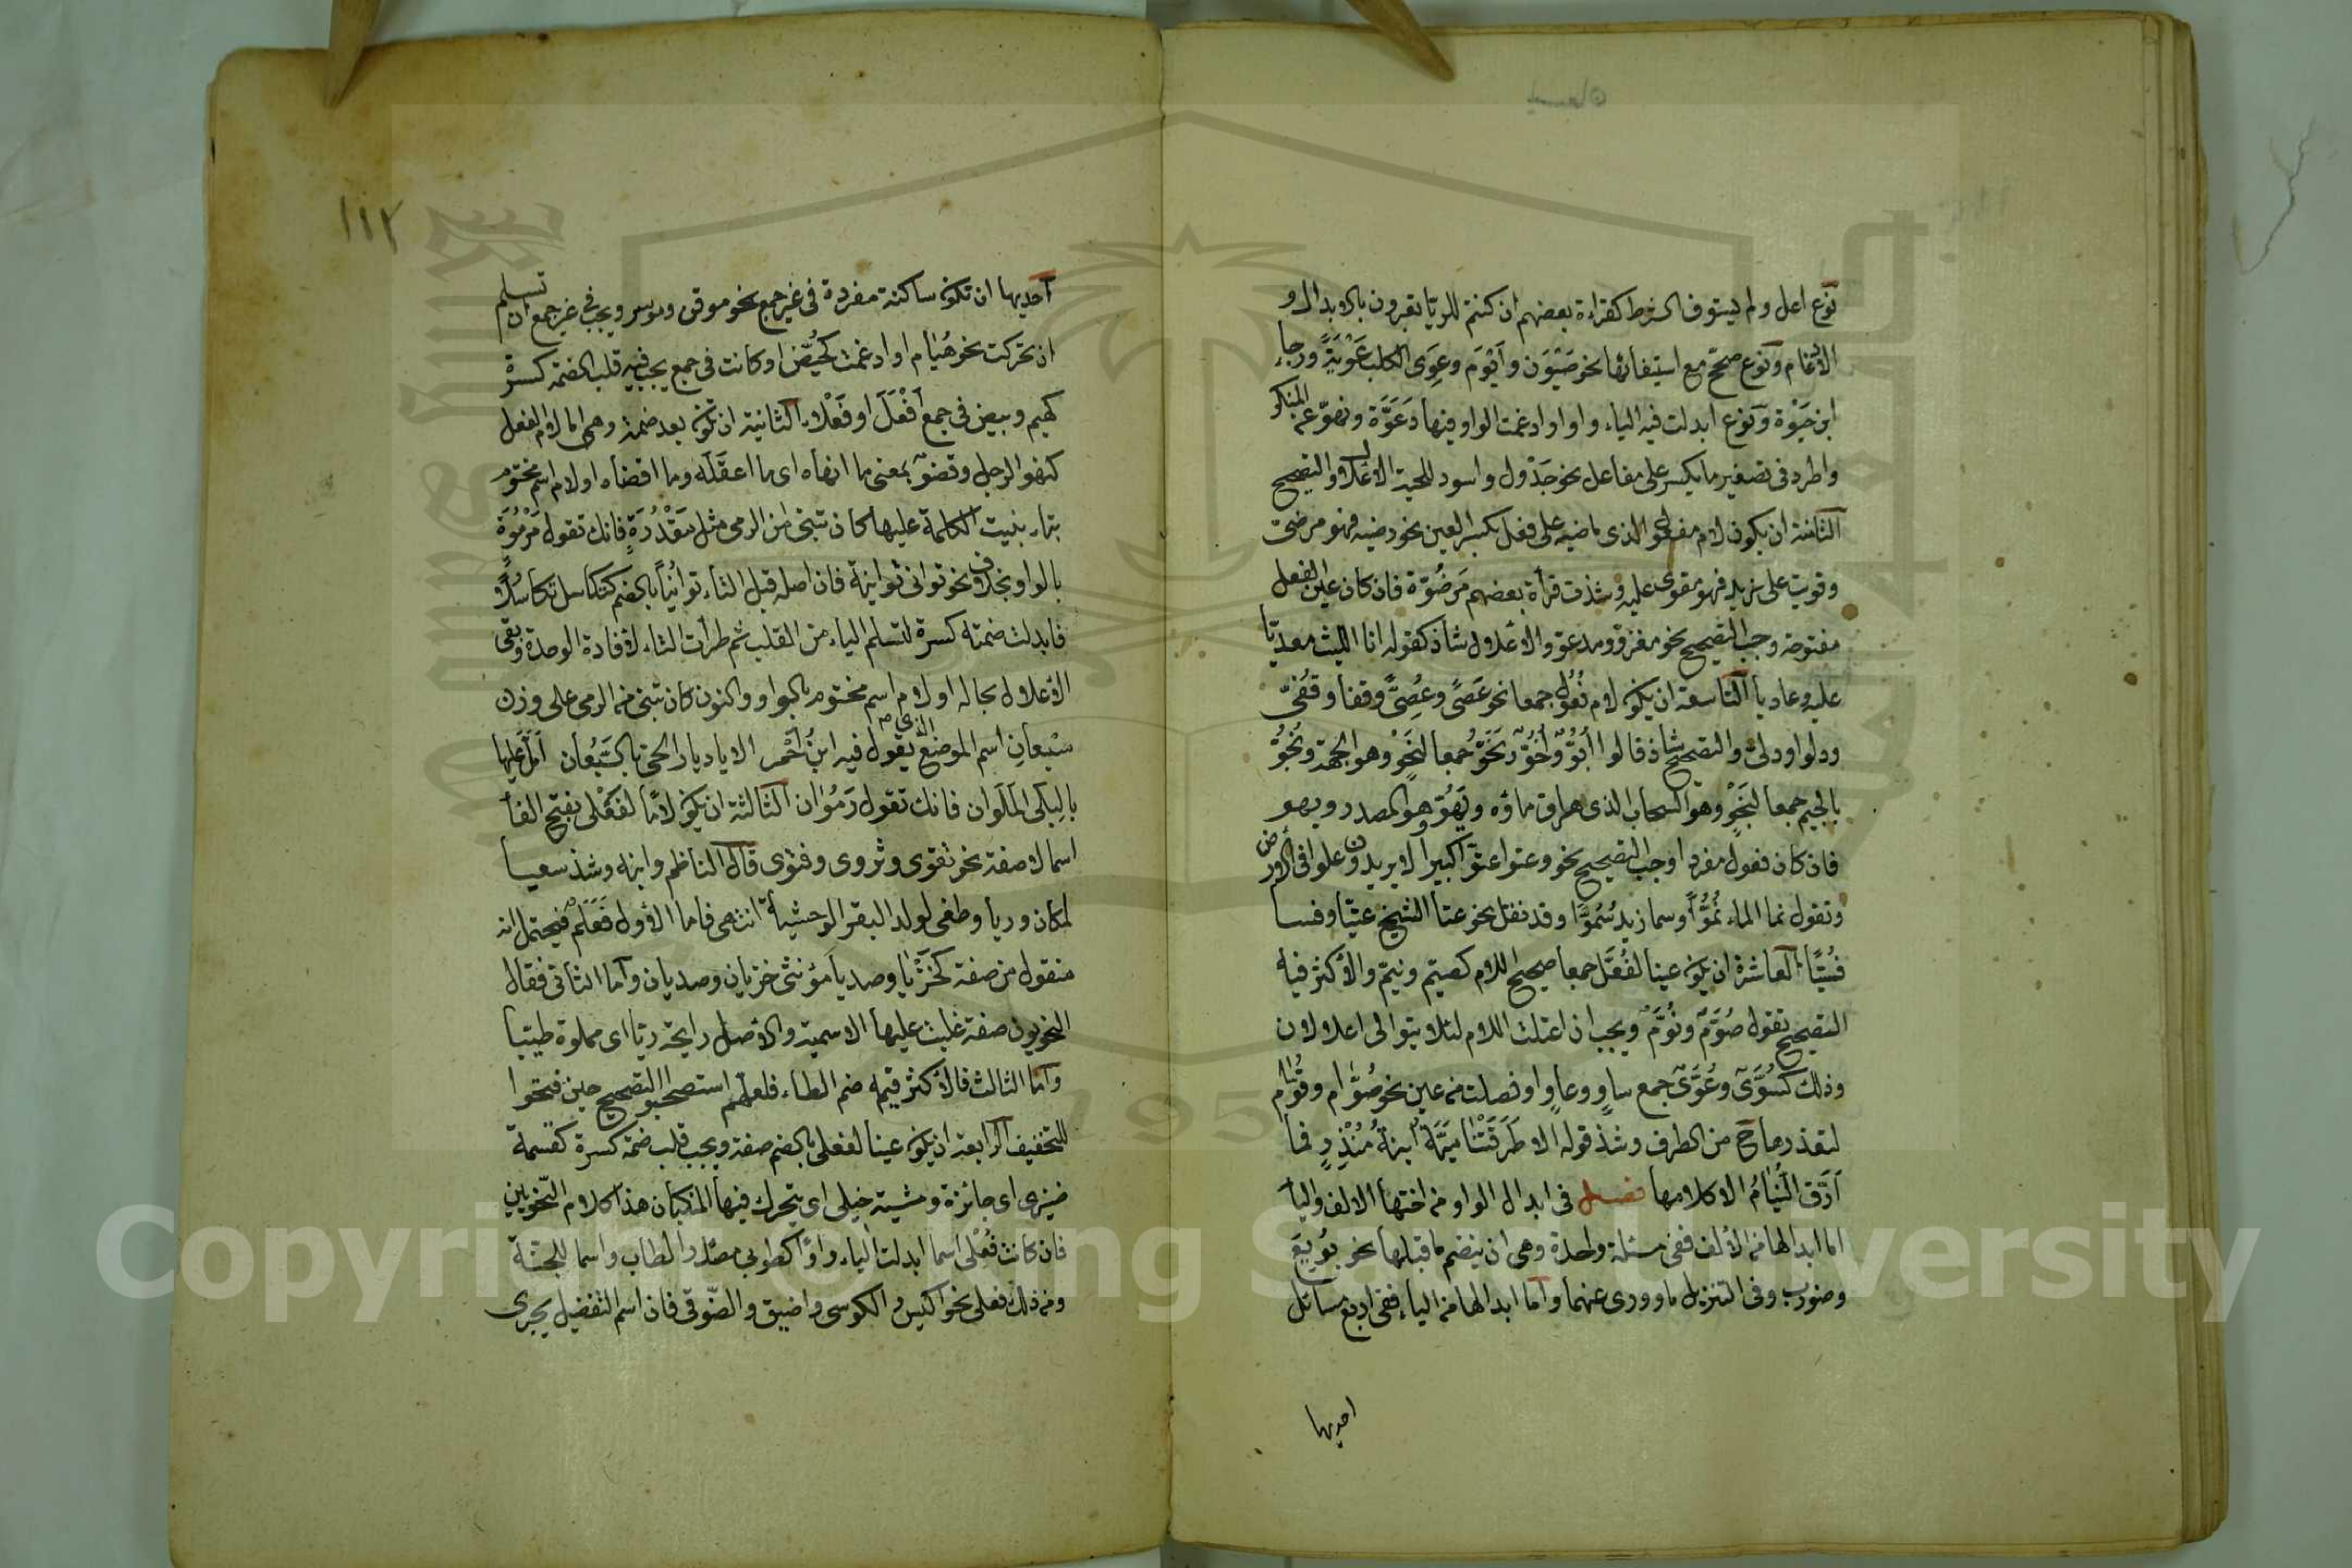 نوع اعل ولم يستوف الشرط كقراءة بعضهم ان كنتم للريّا تعبرون بالابدال و
الادغام ونوع صحّح مع استيفائها نحو ضَيْوَن وأَيْوَم وعوَى الكلب عَوْيَةً ورجاء
ابن حَيْوة ونوع ابدلت فيه الياء واوا وادغمت الواو فيها كعَوَّة ونهوّ عن المنكر
واطرد في تصغير ما يكسر على مفاعل نحو جَدْول واسود للحية الاعلال والتصحيح
الثامنة ان يكون لام مفعول الذي ماضيه على فعل بكسر العين نحو رضيه فهو مرضيّ
وقويت على زيد فهو مقوى عليه وشذت قرأة بعضهم مَرضُوّة فان كان عين الفعل
مفتوحة وجب التصحيح نحو مغزوّ ومدعوّ والاعلال شاذ كقوله انا الليث معديّا
عليه وعاديا التاسعة ان يكون لام فُعُول جمعا نحو عَصًى وعُصِىّ وقفا وقُفِىّ
ودلو ودلىّ والتصحيح شاذ قالوا أُبُوّ وأُخُوّ ونُحُوّ جمعا لنَحْو وهو الجهة ونُجُوّ
بالجيم جمعا لنَجْو وهو السحاب الذي هراق ماؤه وبَهُوّ وهو المصدر وبهو
فان كان فعول مفردا وجب التصحيح نحو وعتوا عتوّا كبيرا لا يريدون علوا في الارض
وتقول نما الماء نُمُوًّا وسما زيد سُمُوًّا وقد نقل نحو عتا الشيخ عتيّا وقسا
قسيًّا العاشرة ان يكون عينا لفُعَّل جمعا صحيح اللام كصيّم ونيّم والاكثر فيه
التصحيح تقول صُوَّم ونُوَّم ويجب ان اعتلت اللام لئلا يتوالى اعلالان
وذلك كشُوًّى وغُوًّى جمع شاوٍ وغاوٍ او فصلت من عين نحو صُوَّام وقُوّام
لتعذرها ح من الطرف وشذ قوله الا طَرَقَتْنا ميَّةُ ابنةُ مُنْذِرٍ فما
أَرَّق النُّيَّامَ الا كلامها فصل في ابدال الواو من اختها الالف واليا
اما ابدالها من الألف ففي مسئلة واحدة وهي ان ينضم ما قبلها نحو بُويِعَ
وضورب وفي التنزيل ما وورى عنهما واما ابدالها من الياء ففي اربع مسائل
احديها
١١٢
احديها ان تكون ساكنة مفردة في غير جمع نحو موقن وموسر ويجب في غير جمع ان تسلم
ان تحركت نحو هُيَام او ادغمت كحُيَّض او كانت في جمع يجب فيه قلب الضمة كسرة
كهيم وبيض في جمع أَفْعَلَ او فَعْلاء الثانية ان تكون بعد ضمة وهي اما لام لفعل
كنهو الرجل وقضو بمعنى ما انهاه اى ما اعقَلَه وما اقضاه او لام اسم مختوم
بتاء بنيت الكلمة عليها كان تبنى من الرمى مثل مَقْدُرَةٍ فانك تقول مَرْمُوَةٌ
بالواو بخلاف نحو توانى توانية فان اصله قبل التاء توانُيًا بالضم كتكاسل تكاسُلًا
فابدلت ضمته كسرة لتسلم الياء من القلب ثم طرأت التاء لافادة الوحدة وبقى
الاعلال بحاله او لام اسم مختوم بالواو والنون كان تبنى من الرمى على وزن
سَبُعان اسم الموضع الذي يقول فيه ابن أحمر الا يا ديار الحي بالسَّبُعان أَمَلَّ عليها
بالبِلَى المَلَوان فانك تقول رَمُوان الثالثة ان يكون لامًا لفَعْلى بفتح الفا
اسما لا صفة نحو تقوى وشروى وفتوى قال الناظم وابنه وشذ سعيا
لمكان وريا وطغى لولد البقر الوحشية انتهى فاما الاول فعَلَم فيحتمل انه
منقول من صفة كخَزْيا وصديا مؤنثى خزيان وصديان واما الثانى فقال
النحويون صفة غلبت عليها الاسمية والاصل رايحة ريّا اى مملوة طيبا
واما الثالث فالاكثر فيه ضم الطاء فلعلهم استصحبوا التصحيح حين فتحوا
للتخفيف الرابعة ان يكون عينا لفعلى بالضم صفة ويجب قلب ضمة كسرة كقسمة
ضيزى اى جائزة ومشية حيكى اى يتحرك فيها المنكبان هذا كلام النحويين
فان كانت فُعْلى اسما ابدلت الياء واوًا كطوبى مصدر الطاب واسما للجنة
ومن ذلك فعلى نحو الكيس والكوسى واضيق والضّوقى فان اسم التفضيل يجرى
Copyright © King Saud University
1957